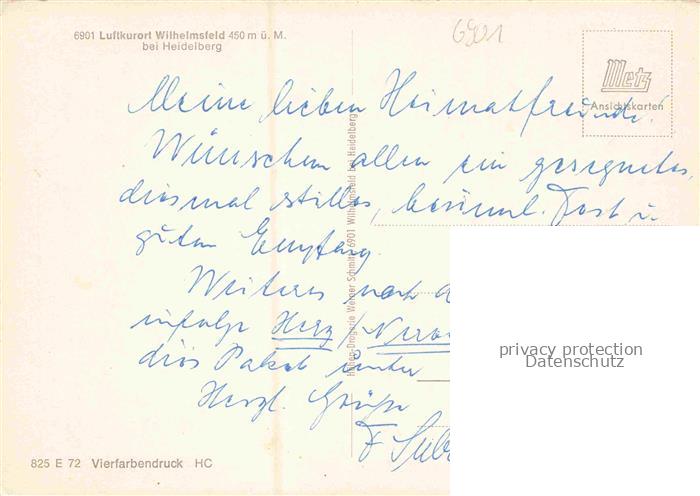 6901 Luftkurort Wilhelmsfeld 450 m ü. M.
bei Heidelberg
6901
Metz
Ansichtskarten
Meine lieben Heimatfreunde!
Wünschen allen ein gesegnetes,
diesmal stilles, besinnl. Fest u.
guten Empfang.
Weiteres nach
infolge Herz/
dies Paket unter
Herzl. Grüße
Höhen-Drogerie Werner Schmitt, 6901 Wilhelmsfeld bei Heidelberg
privacy protection
Datenschutz
825 E 72 Vierfarbendruck HC